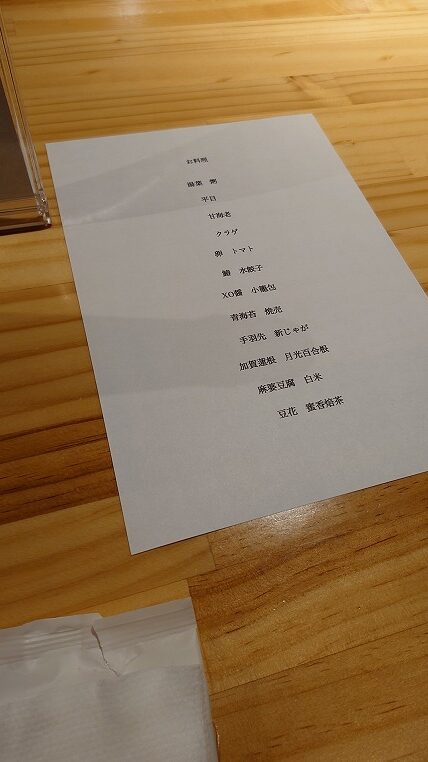 お料理
粥
平目
甘海老
クラゲ
卵　トマト
水餃子
XO醤　小籠包
青海苔　焼売
手羽先　新じゃが
加賀蓮根　月光百合根
麻婆豆腐　白米
豆花　蜜香焙茶